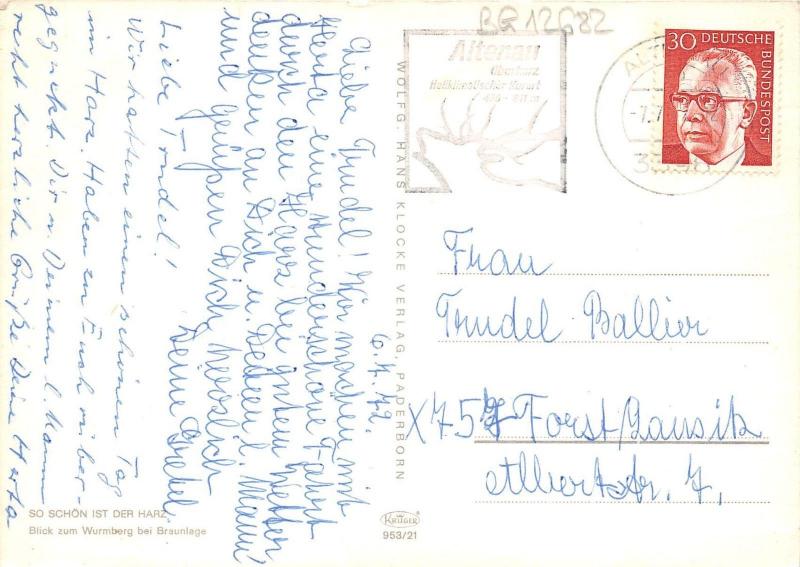 BG12682
Altenau
Oberharz
Heilklimatischer Kurort
450 - 811 m
30 DEUTSCHE
BUNDESPOST
6.7.72.
Liebe Trudel! Wir machen mit
Herta eine wunderschöne Fahrt
durch den Harz bei gutem Wetter
denken an Dich u. Deinen l. Mann!
und grüßen Dich herzlich
Deine Gretel.
Liebe Trudel!
Wir hatten einen schönen Tag
im Harz. Haben zu Euch rüber-
geguckt. Dir u Deinem l. Mann
recht herzliche Grüße Deine Herta
WOLFG. HANS KLOCKE VERLAG, PADERBORN
Frau
Trudel Ballier
X 757 Forst/Lausitz
Albertstr. 7.
SO SCHÖN IST DER HARZ
Blick zum Wurmberg bei Braunlage
KRÜGER
953/21